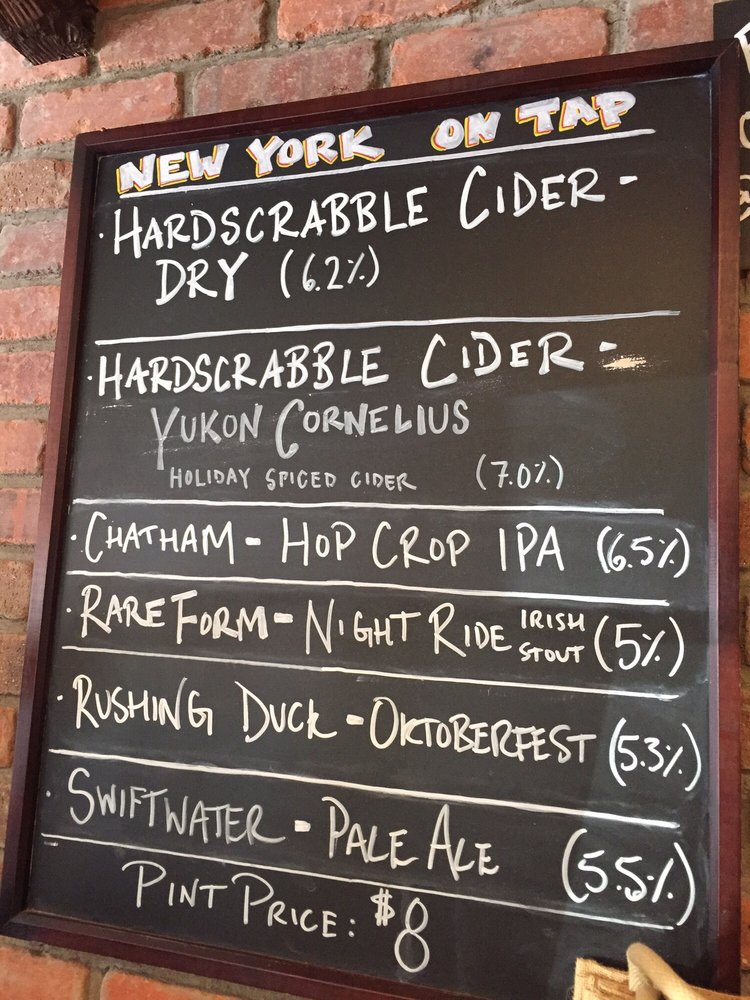 NEW YORK ON TAP
· HARDSCRABBLE CIDER -
DRY (6.2%)
· HARDSCRABBLE CIDER -
YUKON CORNELIUS
HOLIDAY SPICED CIDER (7.0%)
· CHATHAM - HOP CROP IPA (6.5%)
· RARE FORM - NIGHT RIDE IRISH STOUT (5%)
· RUSHING DUCK - OKTOBERFEST (5.3%)
· SWIFTWATER - PALE ALE (5.5%)
PINT PRICE: $8